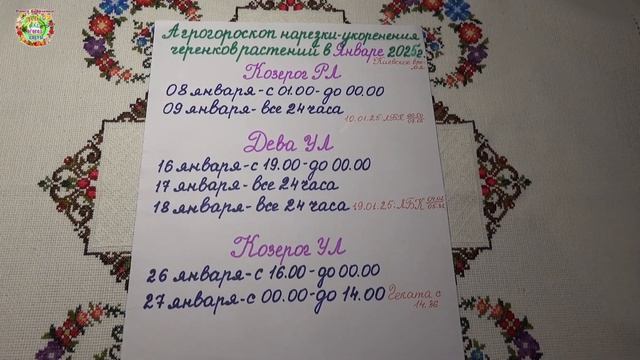 Агрогороскоп нарезки-укоренения
черенков растений в Январе 2025г.
Киевское вре-
мя
Козерог РЛ
08 января-с 01.00-до 00.00
09 января-все 24 часа
10.01.25 ЛБК
Дева УЛ
16 января-с 19.00-до 00.00
17 января-все 24 часа
18 января-все 24 часа 19.01.25-ЛБК
Козерог УЛ
26 января-с 16.00-до 00.00
27 января-с 00.00-до 14.00 Геката с
14.36